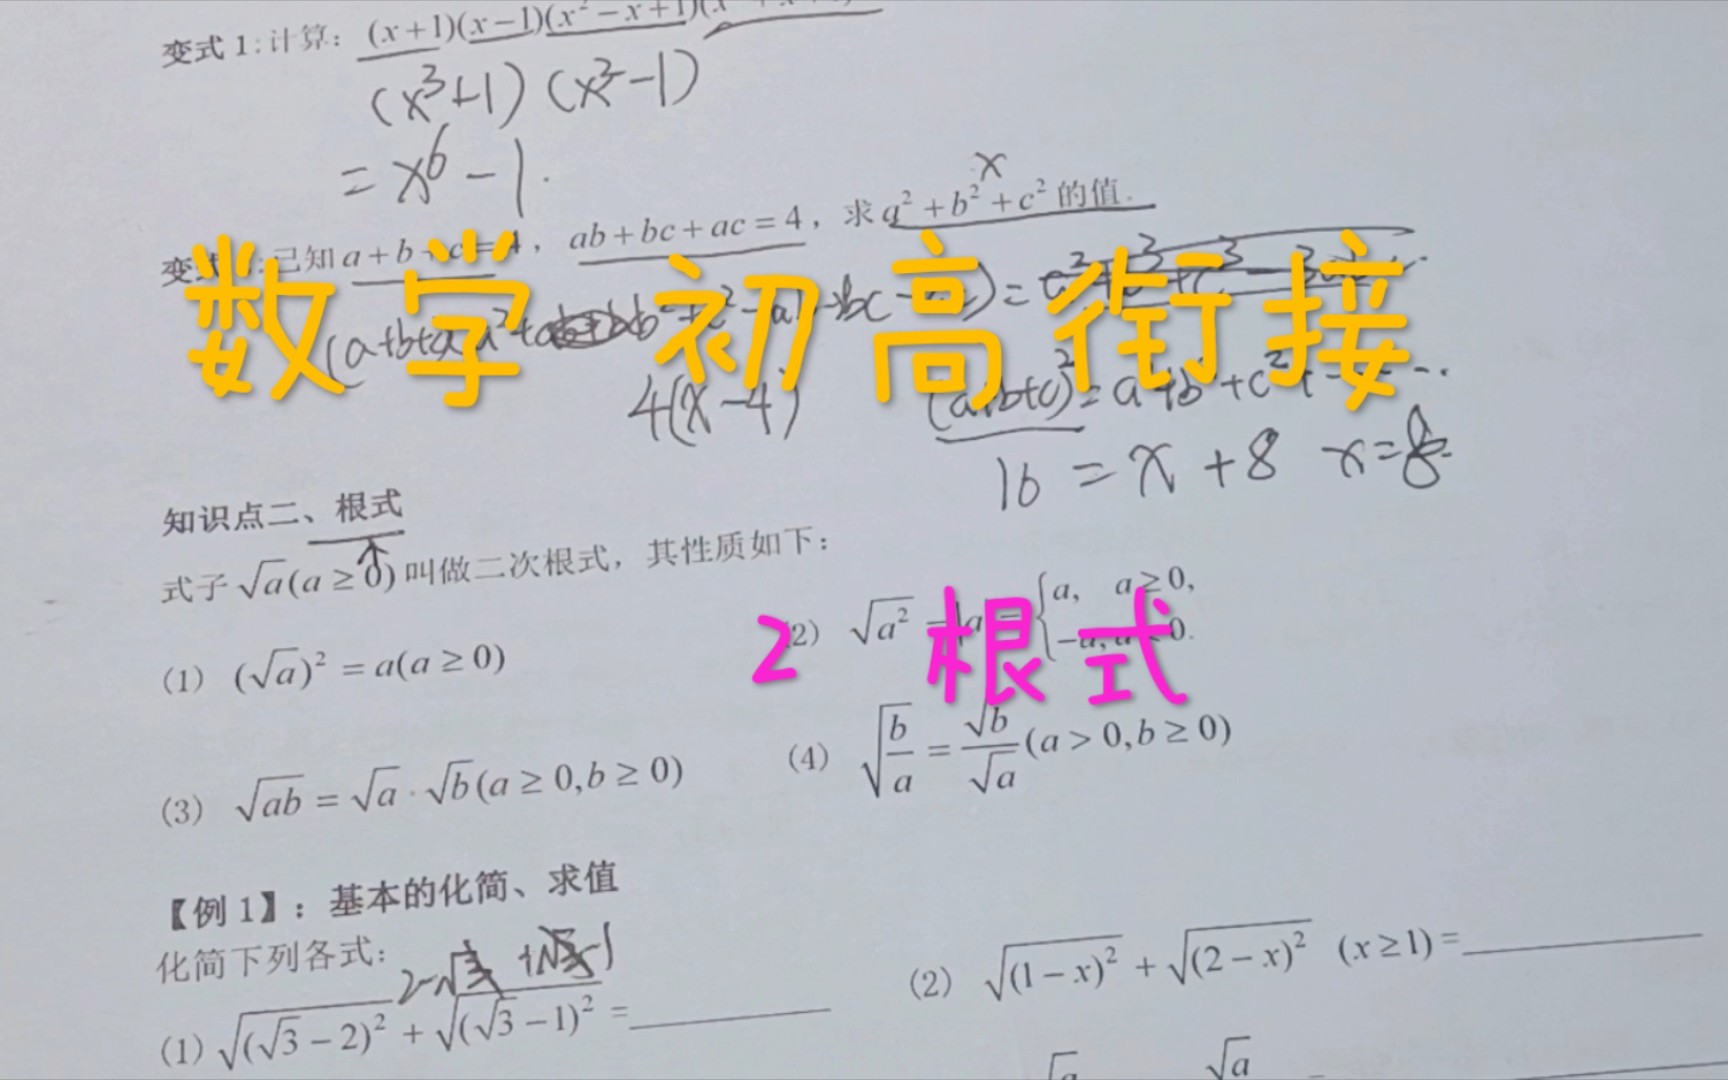 变式 1:计算: (x+1)(x-1)(x²-x+1)(x
(x³+1) (x³-1)
= x⁶-1.
x
变式 :已知 a+b+c=4, ab+bc+ac=4, 求 a²+b²+c² 的值.
数学 初高衔接
4(x-4) (a+b+c)²=a²+b²+c²+……
16 = x+8 x=8
知识点二、根式
式子 √a(a≥0) 叫做二次根式, 其性质如下:
2 根式
(1) (√a)²=a(a≥0) (2) √a²=|a|={a, a≥0, -a, a<0.
(3) √ab=√a·√b(a≥0,b≥0) (4) √(b/a)=√b/√a(a>0,b≥0)
【例 1】: 基本的化简、求值
化简下列各式:
2-√3 +√3-1
(1) √(√3-2)²+√(√3-1)²=______ (2) √(1-x)²+√(2-x)² (x≥1)=______
√a √a